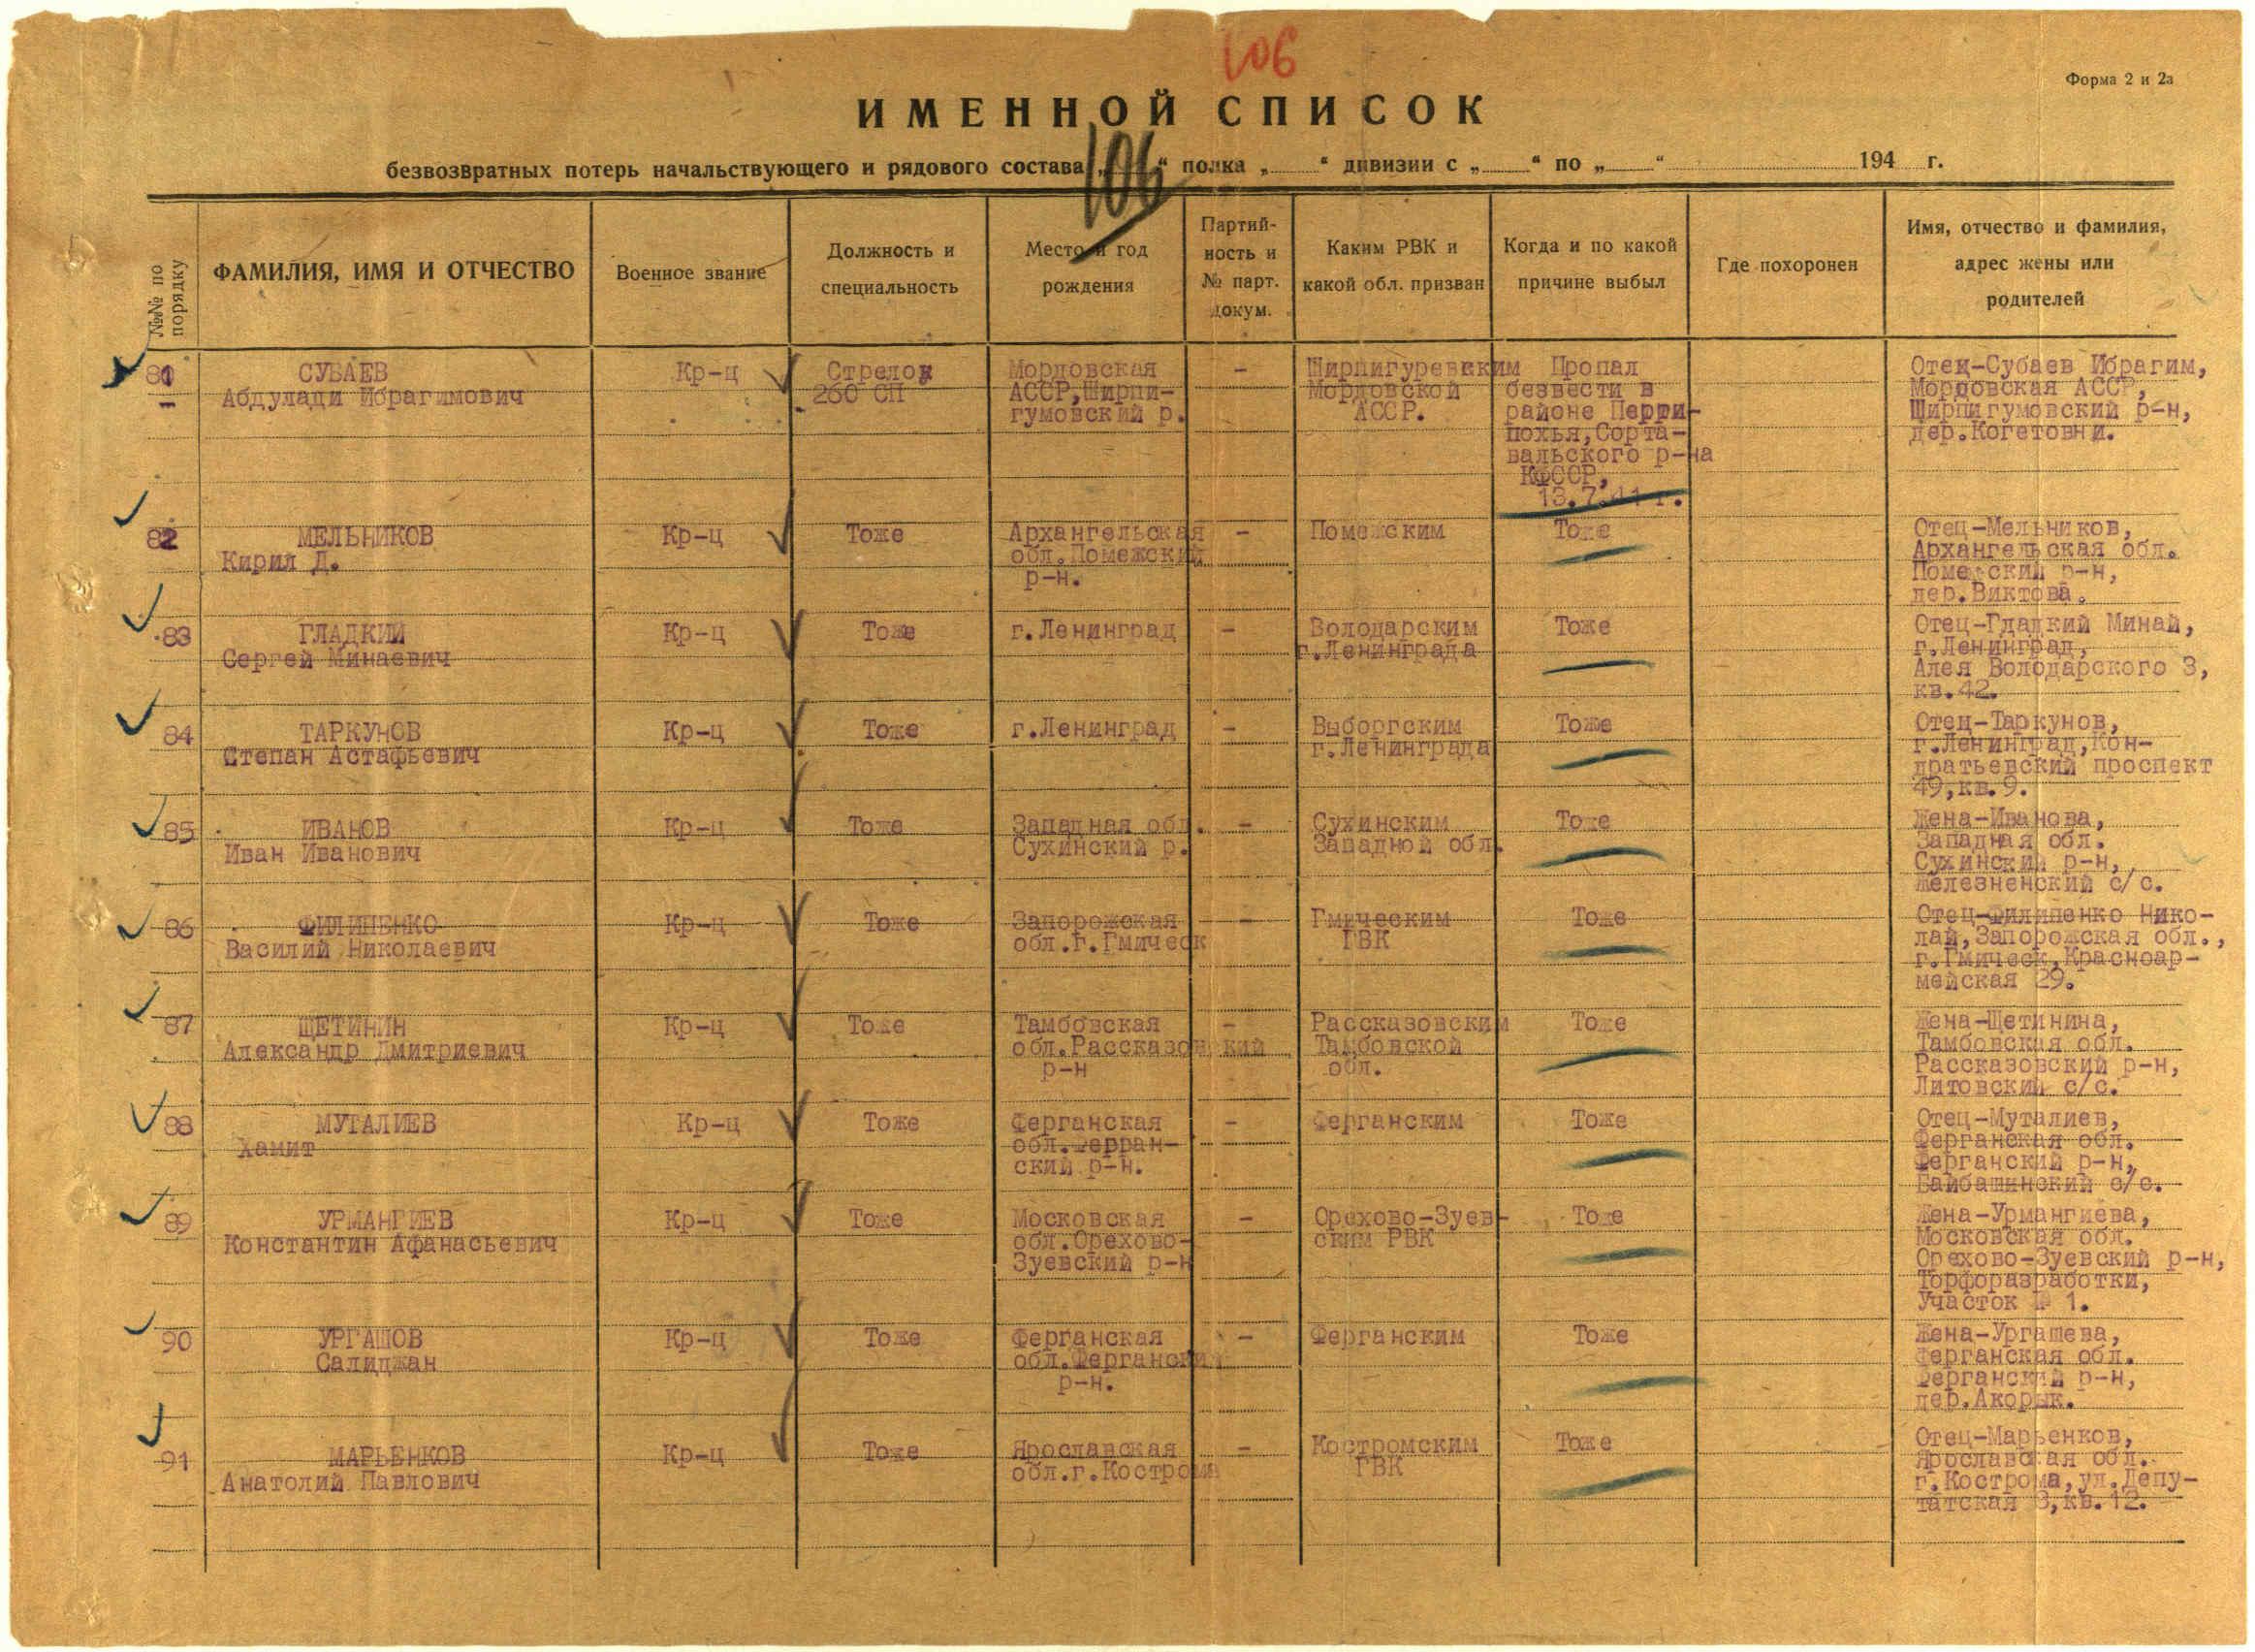 106
Форма 2 и 2а
ИМЕННОЙ СПИСОК
безвозвратных потерь начальствующего и рядового состава „ 106 “ полка „ “ дивизии с „ “ по „ “ 194 г.
№№ по порядку
ФАМИЛИЯ, ИМЯ И ОТЧЕСТВО
Военное звание
Должность и
специальность
Место и год
рождения
Партий-
ность и
№ парт.
докум.
Каким РВК и
какой обл. призван
Когда и по какой
причине выбыл
Где похоронен
Имя, отчество и фамилия,
адрес жены или
родителей
81
СУБАЕВ
Абдулади Ибрагимович
Кр-ц
Стрелок
260 СП
Мордовская
АССР, Ширпи-
гумовский р.
-
Ширпигуревским
Мордовской
АССР.
Пропал
безвести в
районе Перти-
похья, Сорта-
вальского р-на
КФССР,
13.7.41 г.
Отец-Субаев Ибрагим,
Мордовская АССР,
Ширпигумовский р-н,
дер.Когетовни.
82
МЕЛЬНИКОВ
Кирил Д.
Кр-ц
Тоже
Архангельская
обл.Помежский
р-н.
-
Помежским
Тоже
Отец-Мельников,
Архангельская обл.
Помежский р-н,
дер.Виктова.
83
ГЛАДКИЙ
Сергей Минаевич
Кр-ц
Тоже
г.Ленинград
-
Володарским
г.Ленинграда
Тоже
Отец-Гдадкий Минай,
г.Ленинград,
Алея Володарского 3,
кв.42.
84
ТАРКУНОВ
Степан Астафьевич
Кр-ц
Тоже
г.Ленинград
-
Выборгским
г.Ленинграда
Тоже
Отец-Таркунов,
г.Ленинград, Кон-
дратьевский проспект
49, кв.9.
85
ИВАНОВ
Иван Иванович
Кр-ц
Тоже
Западная обл.
Сухинский р.
-
Сухинским
Западной обл.
Тоже
Жена-Иванова,
Западная обл.
Сухинский р-н,
Железненский с/с.
86
ФИЛИПЕНКО
Василий Николаевич
Кр-ц
Тоже
Запорожская
обл.г.Гмическ
-
Гмическим
ГВК
Тоже
Отец-Филипенко Нико-
лай, Запорожская обл.,
г.Гмическ, Красноар-
мейская 29.
87
ЩЕТИНИН
Александр Дмитриевич
Кр-ц
Тоже
Тамбовская
обл.Рассказовский
р-н
-
Рассказовским
Тамбовской
обл.
Тоже
Жена-Щетинина,
Тамбовская обл.
Рассказовский р-н,
Литовский с/с.
88
МУТАЛИЕВ
Хамит
Кр-ц
Тоже
Ферганская
обл.Ферган-
ский р-н.
-
Ферганским
Тоже
Отец-Муталиев,
Ферганская обл.
Ферганский р-н,
Байбашинский с/с.
89
УРМАНГИЕВ
Константин Афанасьевич
Кр-ц
Тоже
Московская
обл.Орехово-
Зуевский р-н
-
Орехово-Зуев-
ским РВК
Тоже
Жена-Урмангиева,
Московская обл.
Орехово-Зуевский р-н,
Торфоразработки,
Участок № 1.
90
УРГАШОВ
Салиджан
Кр-ц
Тоже
Ферганская
обл.Ферганский
р-н.
-
Ферганским
Тоже
Жена-Ургашева,
Ферганская обл.
Ферганский р-н,
дер.Акорык.
91
МАРЬЕНКОВ
Анатолий Павлович
Кр-ц
Тоже
Ярославская
обл.г.Кострома
-
Костромским
ГВК
Тоже
Отец-Марьенков,
Ярославская обл.
г.Кострома, ул.Депу-
татская 3, кв.12.